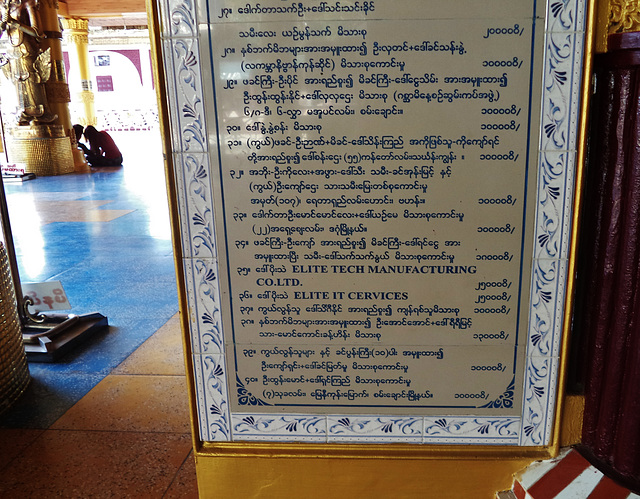 ၂၇။ ဒေါက်တာသက်ဦး+ဒေါ်သင်းသင်းခိုင်
သမီးလေး ယဉ်မွန်သက် မိသားစု ၂၀၀၀၀၀ိ/
၂၈။ နှစ်ဘက်မိဘများအားအမှူးထား၍ ဦးလှတင်+ဒေါ်ခင်သန်းနွဲ့
(လကမ္ဘာနိဗ္ဗာန်ကုန်ဆိုင်) မိသားစုကောင်းမှု ၁၀၀၀၀၀ိ/
၂၉။ ဖခင်ကြီး-ဦးပိုင် အားရည်စူး၍ မိခင်ကြီး-ဒေါ်ငွေသိမ်း အားအမှူးထား၍
ဦးထွန်းထွန်းနိုင်+ဒေါ်လှလှဌေး မိသားစု
၆/က-ဒီ၊ ၆-လွှာ မအူပင်လမ်း၊ စမ်းချောင်း။ ၁၀၀၀၀၀ိ/
၃၀။ ဒေါ်နွဲ့နွဲ့စန်း မိသားစု ၁၀၀၀၀၀ိ/
၃၁။ (ကွယ်)ဖခင်-ဦးဉာဏ်+မိခင်-ဒေါ်သိန်းကြည် အကိုဖြစ်သူ-ကိုကျော်ရင်
တို့အားရည်စူး၍ ဒေါ်စန်းဌေး (၅၅)ကန်တော်လမ်းသယ်န်ကျွန်း ။ ၁၀၀၀၀၀ိ/
၃၂။ အဘိုး-ဦးကိုလေး+အဖွား-ဒေါ်သီ သမီး-ခင်အုန်းမြင့် နှင့်
(ကွယ်)ဦးကျော်ဌေး သားသမီးမြေးတစ်စုကောင်းမှု
အမှတ်(၁၀၇)၊ ရေတာရှည်လမ်းဟောင်း၊ ဗဟန်း။ ၁၀၀၀၀၀ိ/
၃၃။ ဒေါက်တာဦးမောင်မောင်လေး+ဒေါ်ယဉ်မေ မိသားစုကောင်းမှု
(၂၂)အရှေ့ဈေးလမ်း၊ ဒဂုံမြို့နယ်။ ၁၀၀၀၀၀ိ/
၃၄။ ဖခင်ကြီး-ဦးကျော် အားရည်စူး၍ မိခင်ကြီး-ဒေါ်ရင်ငွေ အား
အမှူးထားပြီး သမီး-ဒေါ်သက်သက်နွယ် မိသားစုကောင်းမှု ၁၈၀၀၀၀ိ/
၃၅။ ဒေါ်ပိုးသဲ ELITE TECH MANUFACTURING
CO.LTD. ၂၅၀၀၀ိ/
၃၆။ ဒေါ်ပိုးသဲ ELITE IT CERVICES ၂၅၀၀၀ိ/
၃၇။ ကွယ်လွန်သူ ဒေါ်သီရိနိုင် အားရည်စူး၍ ကျန်ရစ်သူမိသားစု ၁၀၀၀၀၀ိ/
၃၈။ နှစ်ဘက်မိဘများအားအမှူးထား၍ ဦးအောင်အောင်+ဒေါ်ရီရီမြင့်
သား-မောင်ကောင်းခန့်ဟိန်း မိသားစု ၁၃၀၀၀၀ိ/
၃၉။ ကွယ်လွန်သူများ နှင့် ခင်ပွန်းကြီး(၁၀)ပါး အမှူးထား၍
ဦးကျော်ရှင်း+ဒေါ်ခင်မြတ်မူ မိသားစုကောင်းမှု ၁၀၀၀၀၀ိ/
၄၀။ ဦးထွန်းမောင်+ဒေါ်ရှင်ကြည် မိသားစုကောင်းမှု
(၇)သုခလမ်း၊ မြေနီကုန်းမြောက်၊ စမ်းချောင်းမြို့နယ်။ ၁၀၀၀၀၀ိ/